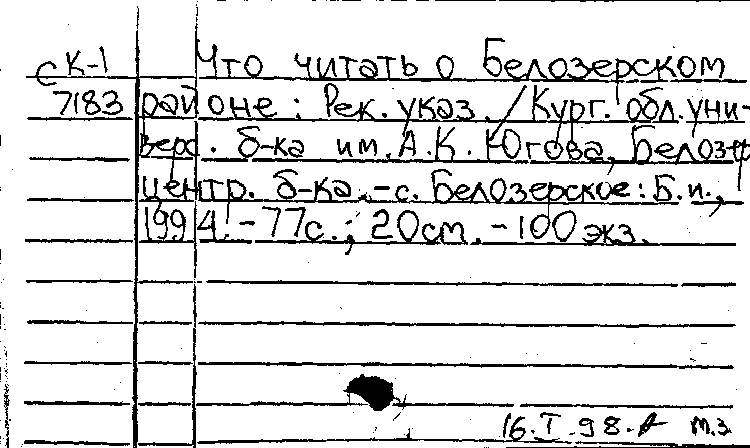 с К-1 Что читать о Белозерском
7183 районе: Рек. указ. / Кург. обл. уни-
верс. б-ка им. А. К. Югова, Белозер
центр. б-ка. - с. Белозерское: Б.и.,
1994. - 77с.; 20см. - 100 экз.
16.I.98. м.з